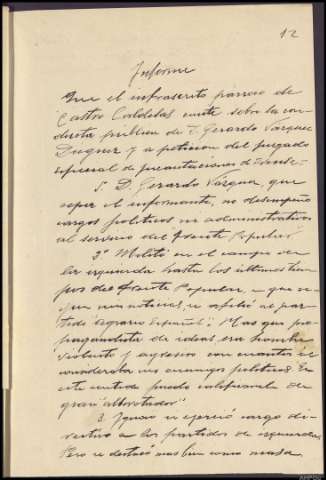 12
Informe
Que el infrascrito párroco de
Castro Caldelas emite sobre la con-
ducta publica de D. Gerardo Vázquez
y a petición del juzgado
especial de incautaciones de Orense.-
1. D. Gerardo Vázquez, que
sepa el informante, no desempeñó
cargos políticos ni administrativos
al servicio del Frente Popular.
2º Militó en el campo de
la izquierda hasta los últimos tiem
pos del Frente Popular, en que se-
gun mis noticias, se afilió al par-
tido "Agrario Español". Mas que pro-
pagandista de ideas, era hombre
violento y agresivo con cuantos él
consideraba sus enemigos políticos. En
este sentido puedo calificarle de
gran "alborotador"
3. Ignoro si ejerció cargo di-
rectivo en los partidos de izquierdas,
Pero se destacó mas bien como masa.